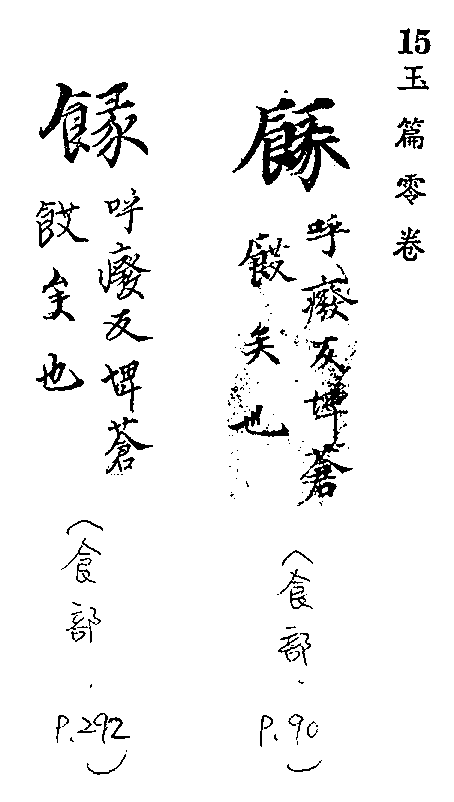 15
玉篇零卷
餯
呼癈反埤蒼
餀矣也
(食部.
P.90)
餯
呼廢反埤蒼
餀矣也
(食部.
P.292)